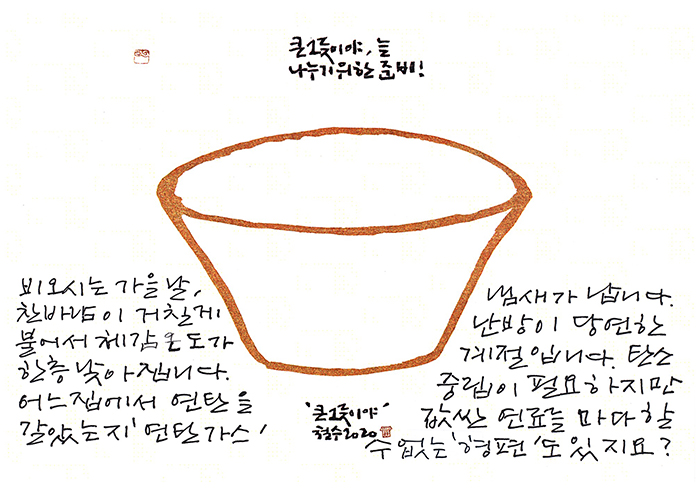 큰그릇이야, 늘
나누기위한 준비!
비오시는 가을날,
찬바람이 거칠게
불어서 체감온도가
한층 낮아집니다.
어느집에서 연탄을
갈았는지 '연탄가스'
냄새가 납니다.
난방이 당연한
계절입니다. 탄소
중립이 필요하지만
값싼 연료를 마다할
수 없는 '형편'도 있지요?
'큰그릇이야'
철수2020